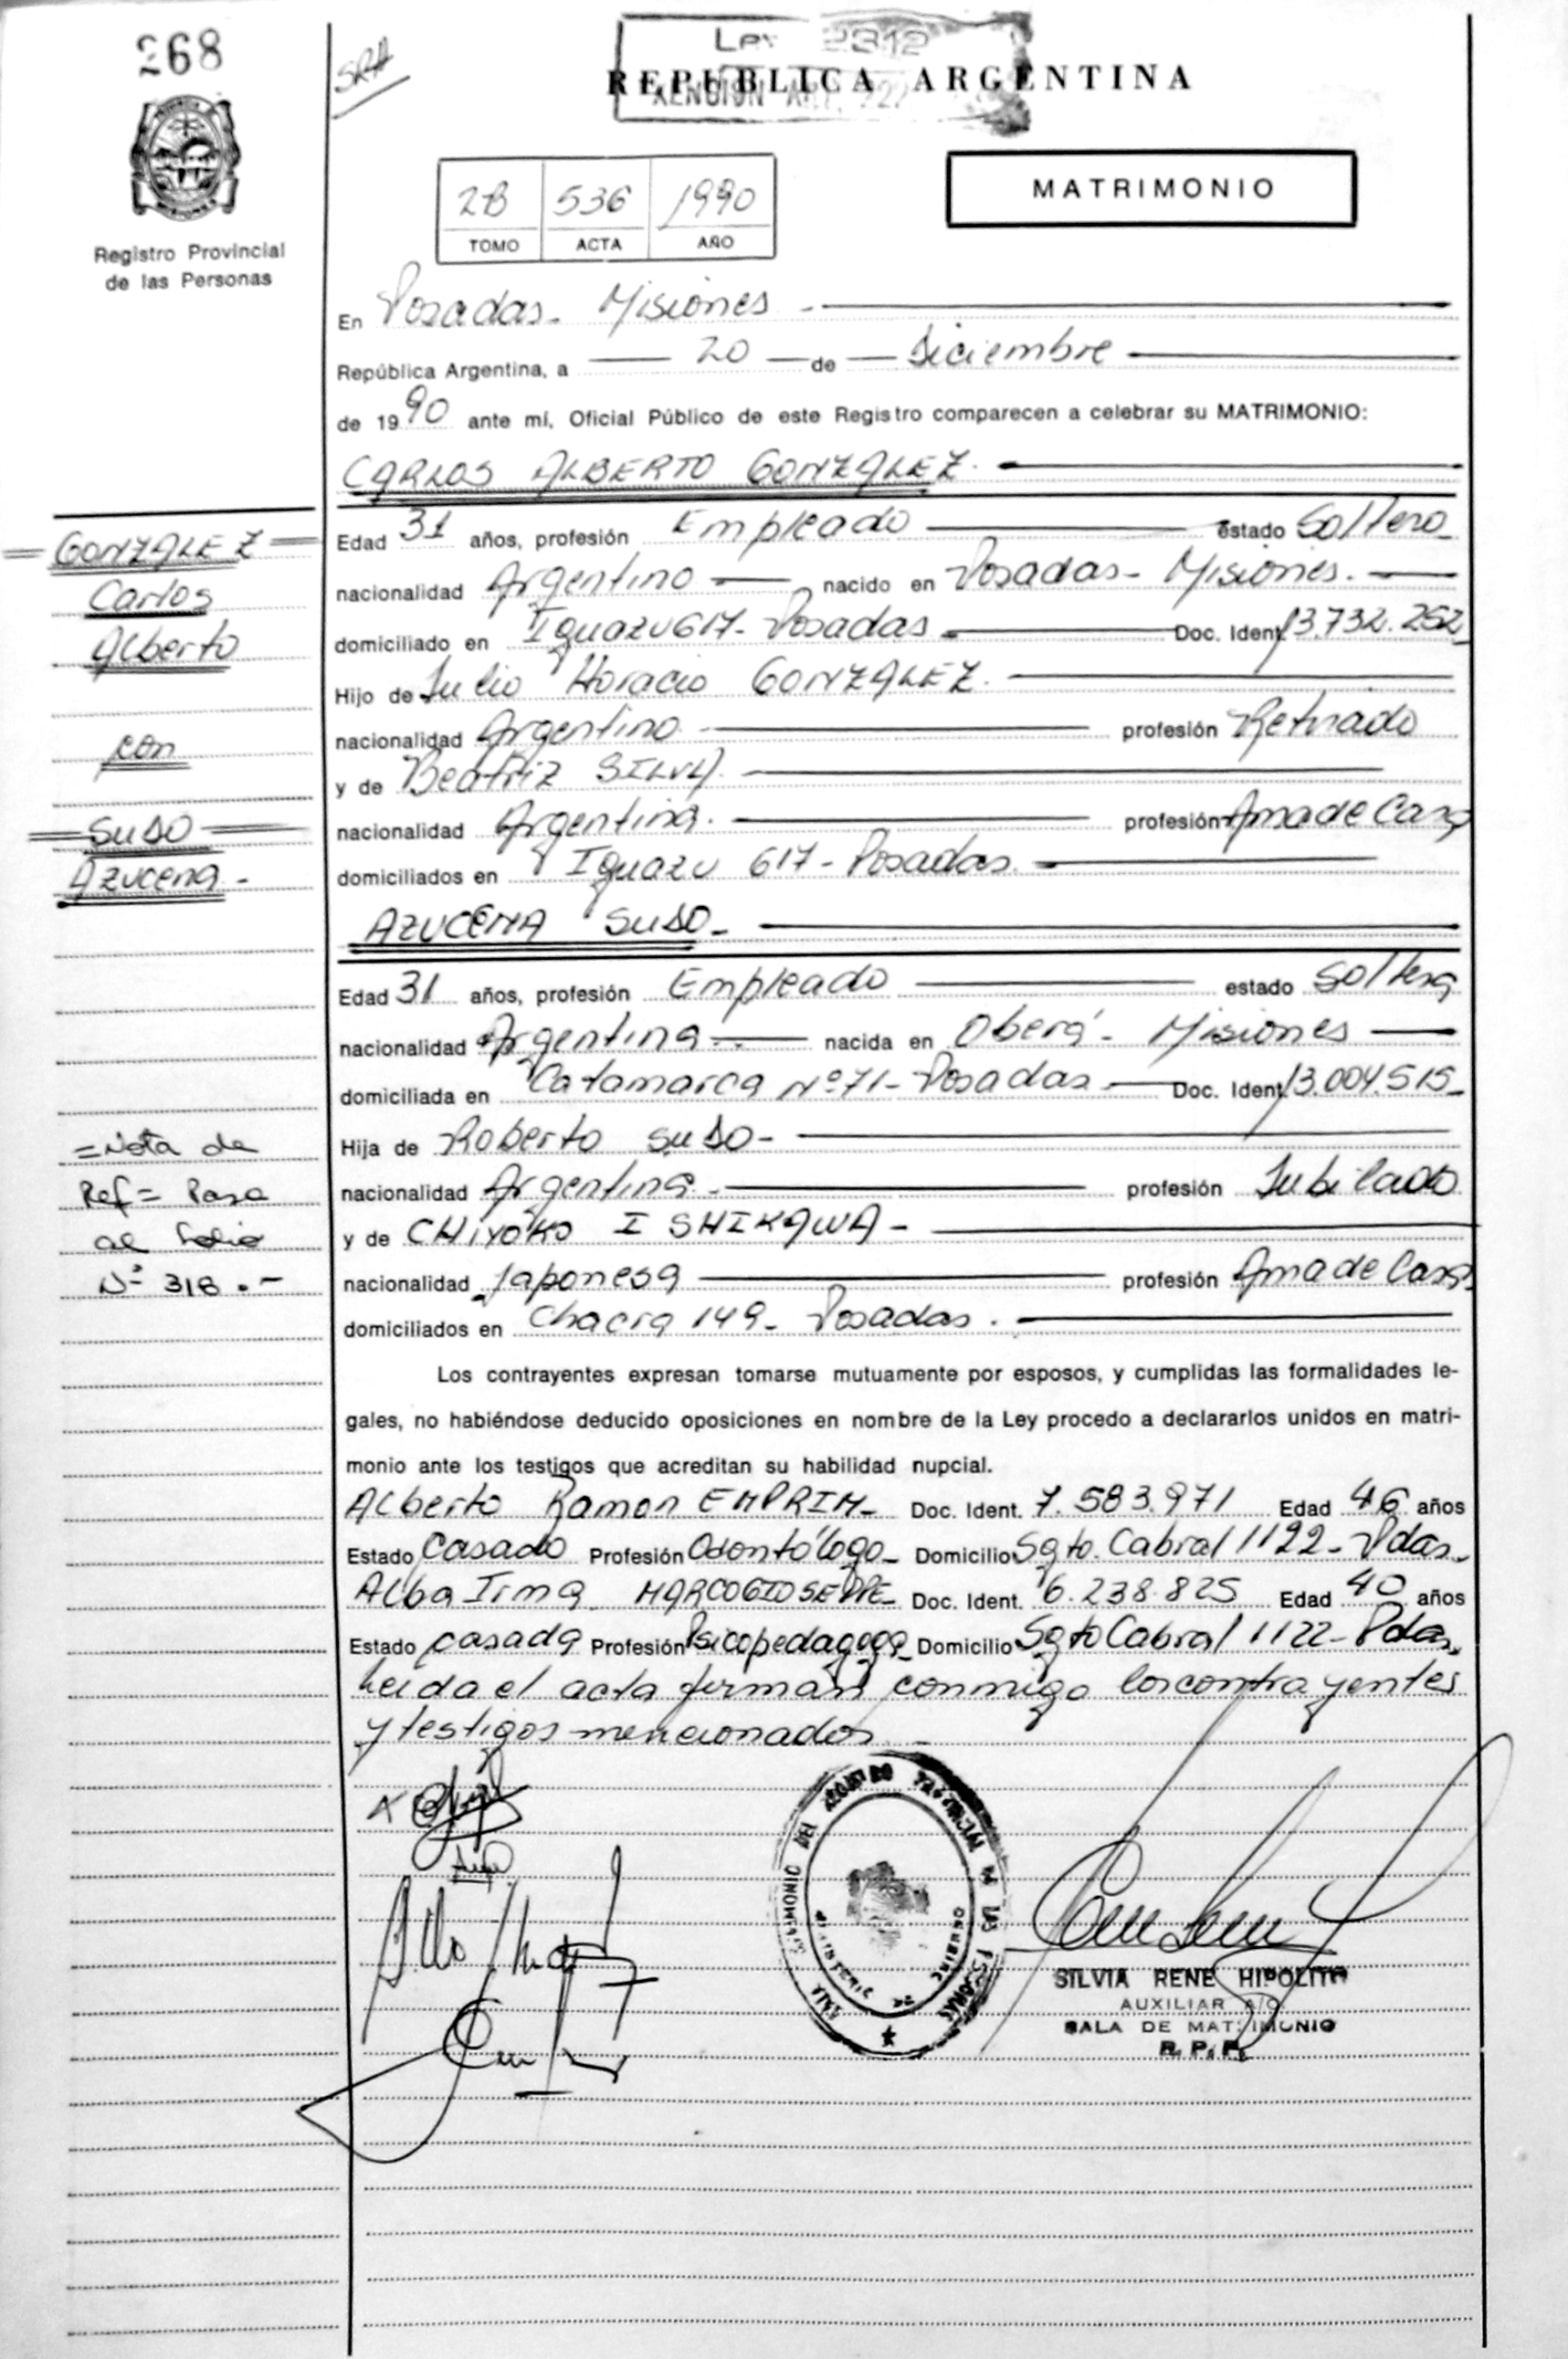 268
SRH
Ley 2312
REPUBLICA ARGENTINA
MATRIMONIO
2B 536 1990
TOMO ACTA AÑO
Registro Provincial
de las Personas
En Posadas - Misiones -
República Argentina, a 20 de Diciembre
de 1990 ante mí, Oficial Público de este Registro comparecen a celebrar su MATRIMONIO:
CARLOS ALBERTO GONZALEZ.
GONZALEZ
Carlos
Alberto
con
SUDO
Azucena -
Edad 31 años, profesión Empleado estado Soltero
nacionalidad Argentino nacido en Posadas - Misiones.
domiciliado en Iguazu 617 - Posadas Doc. Ident. 13.732.252
Hijo de Julio Horacio GONZALEZ.
nacionalidad Argentino profesión Retirado
y de Beatriz SILVA.
nacionalidad Argentina. profesión Ama de Casa
domiciliados en Iguazu 617 - Posadas.
AZUCENA SUDO -
Edad 31 años, profesión Empleado estado Soltera
nacionalidad Argentina nacida en Oberá - Misiones
domiciliada en Catamarca Nº 71 - Posadas Doc. Ident. 13.004.515
Hija de Roberto SUDO -
nacionalidad Argentina - profesión Jubilado
y de CHIYOKO ISHIKAWA -
nacionalidad Japonesa profesión Ama de Casa
domiciliados en Chacra 149 - Posadas.
=Nota de
Ref= Pasa
al Folio
Nº 318.-
Los contrayentes expresan tomarse mutuamente por esposos, y cumplidas las formalidades le-
gales, no habiéndose deducido oposiciones en nombre de la Ley procedo a declararlos unidos en matri-
monio ante los testigos que acreditan su habilidad nupcial.
Alberto Ramon EMPRIM - Doc. Ident. 7.583.971 Edad 46 años
Estado Casado Profesión Odontólogo - Domicilio Sgto. Cabral 1122 - Pdas.
Alba Irma MARCOGIOSEPPE - Doc. Ident. 6.238.825 Edad 40 años
Estado casada Profesión Psicopedagoga Domicilio Sgto Cabral 1122 - Pdas.
Leida el acta firman conmigo los contrayentes
y testigos mencionados -
SILVIA RENE HIPOLITO
AUXILIAR A/C
SALA DE MATRIMONIO
R. P. P.